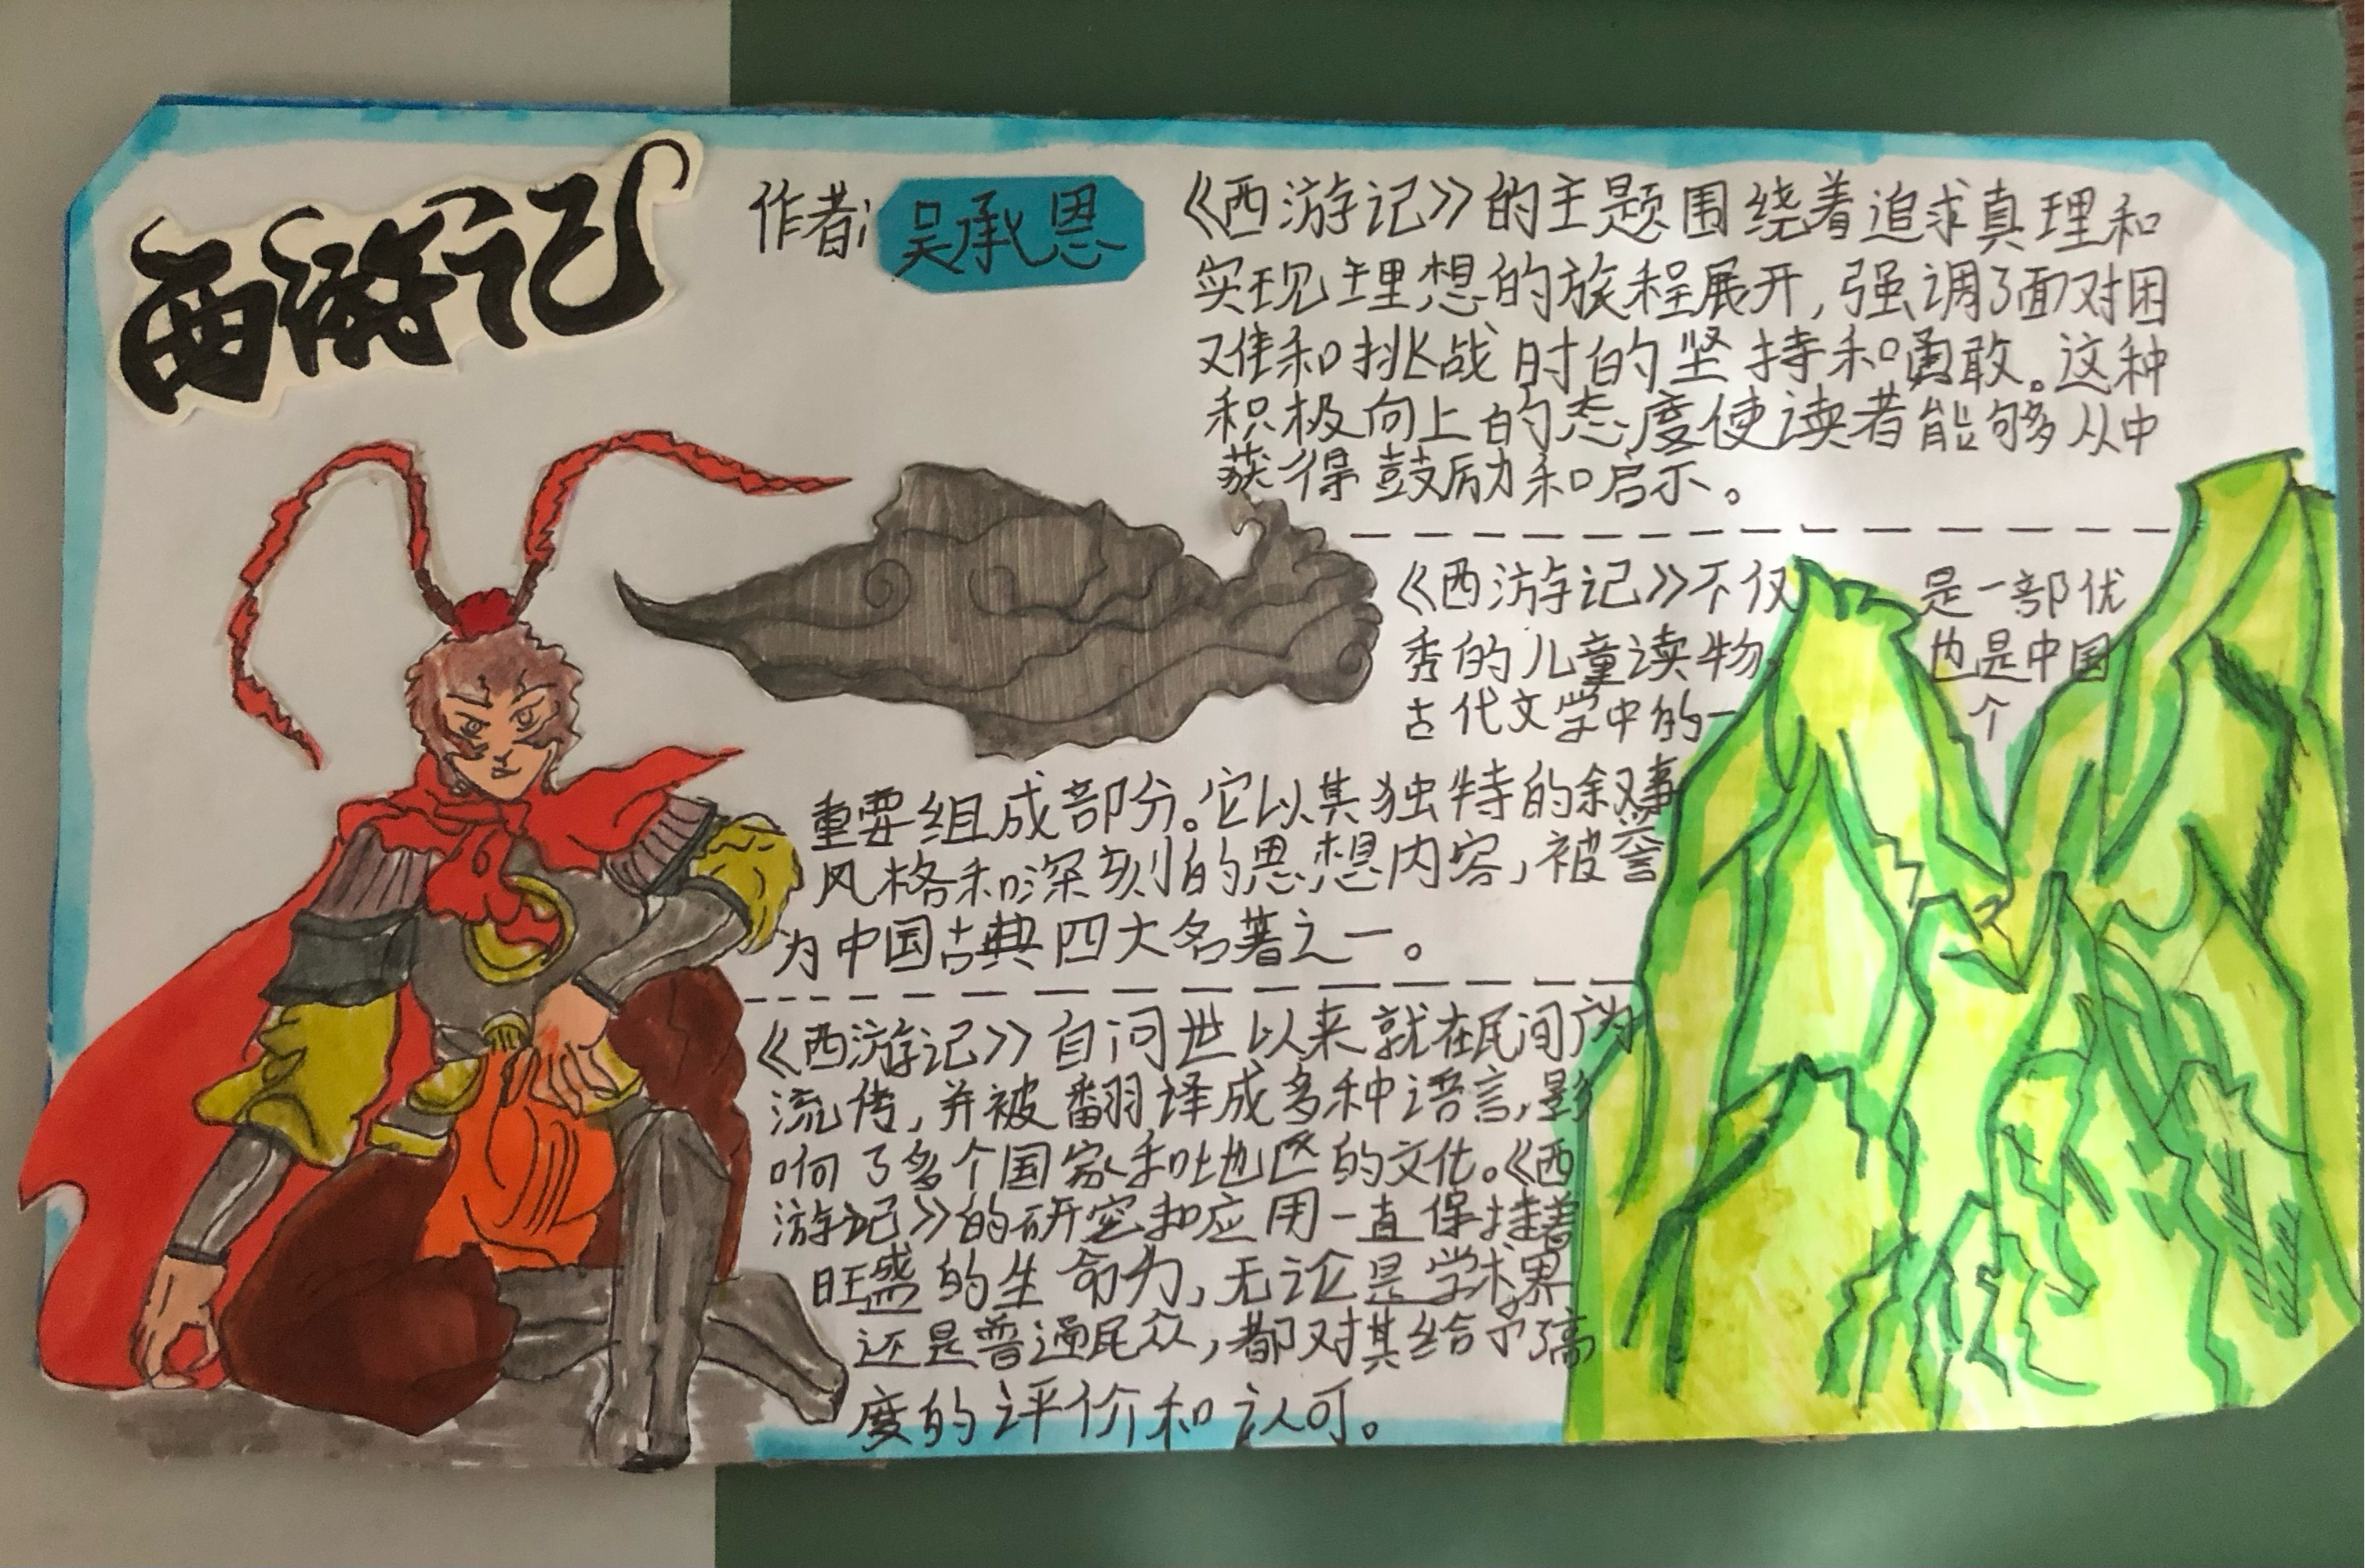 西游记
作者:吴承恩
《西游记》的主题围绕着追求真理和
实现理想的旅程展开,强调了面对困
难和挑战时的坚持和勇敢。这种
积极向上的态度使读者能够从中
获得鼓励和启示。
《西游记》不仅是一部优
秀的儿童读物,也是中国
古代文学中的一个
重要组成部分。它以其独特的叙事
风格和深刻的思想内容,被誉
为中国古典四大名著之一。
《西游记》自问世以来就在民间广为
流传,并被翻译成多种语言,影
响了多个国家和地区的文化。《西
游记》的研究和应用一直保持着
旺盛的生命力,无论是学术界
还是普通民众,都对其给予了高
度的评价和认可。